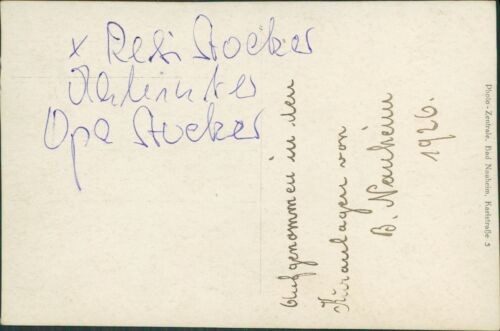 x Resi Stocker
dahinter
Opa Stocker
Aufgenommen in den
Kuranlagen von
B. Nauheim
1926.
Photo-Zentrale, Bad Nauheim, Karlstraße 5